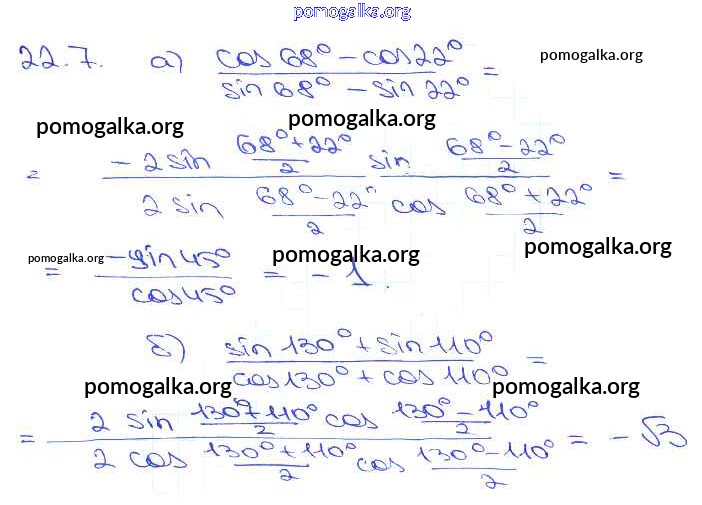 pomogalka.org
22.7. а) (cos 68° − cos 22°)/(sin 68° − sin 22°) =
pomogalka.org
pomogalka.org
pomogalka.org
= (−2 sin (68° + 22°)/2 sin (68° − 22°)/2)/(2 sin (68° − 22°)/2 cos (68° + 22°)/2) =
pomogalka.org
pomogalka.org
pomogalka.org
= (−sin 45°)/(cos 45°) = −1.
б) (sin 130° + sin 110°)/(cos 130° + cos 110°) =
pomogalka.org
pomogalka.org
= (2 sin (130° + 110°)/2 cos (130° − 110°)/2)/(2 cos (130° + 110°)/2 cos (130° − 110°)/2) = −√3